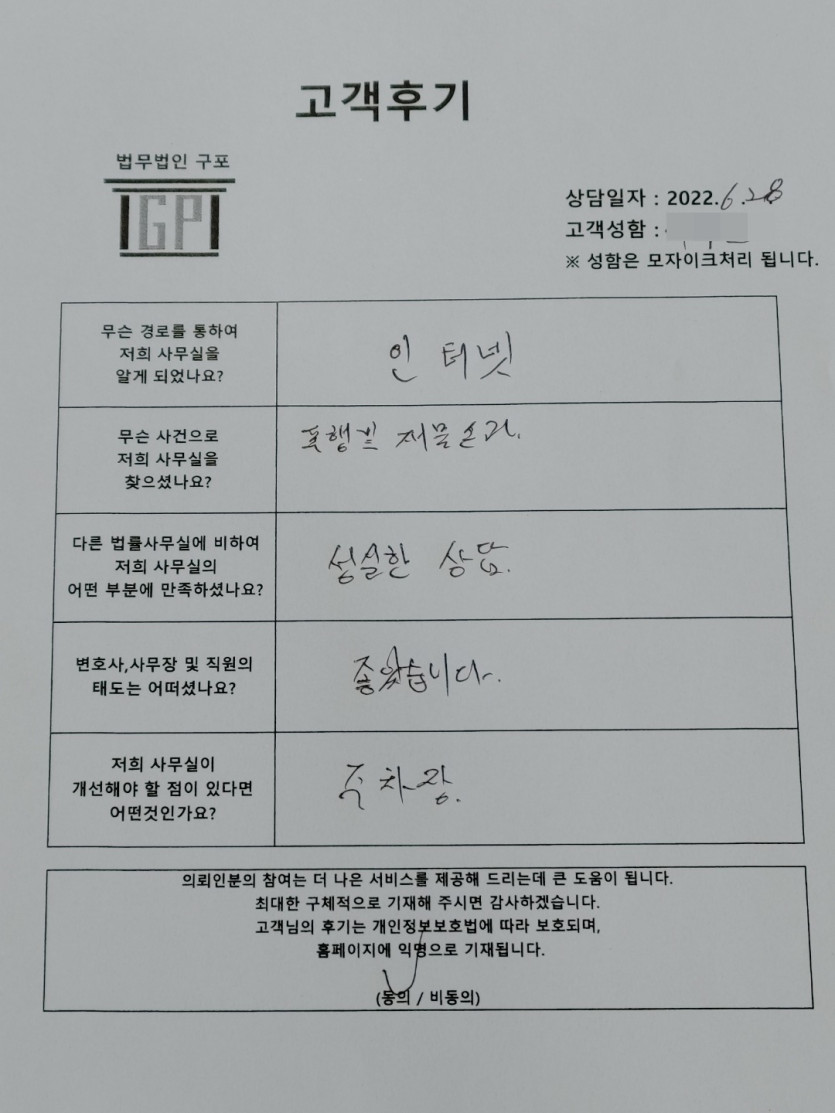 고객후기
법무법인 구포
IGPI
상담일자 : 2022.6.28
고객성함 :
※ 성함은 모자이크처리 됩니다.
무슨 경로를 통하여
저희 사무실을
알게 되었나요?
인터넷
무슨 사건으로
저희 사무실을
찾으셨나요?
폭행및 재물손괴.
다른 법률사무실에 비하여
저희 사무실의
어떤 부분에 만족하셨나요?
성실한 상담.
변호사,사무장 및 직원의
태도는 어떠셨나요?
좋았습니다.
저희 사무실이
개선해야 할 점이 있다면
어떤것인가요?
주차장.
의뢰인분의 참여는 더 나은 서비스를 제공해 드리는데 큰 도움이 됩니다.
최대한 구체적으로 기재해 주시면 감사하겠습니다.
고객님의 후기는 개인정보보호법에 따라 보호되며,
홈페이지에 익명으로 기재됩니다.
(동의 / 비동의)